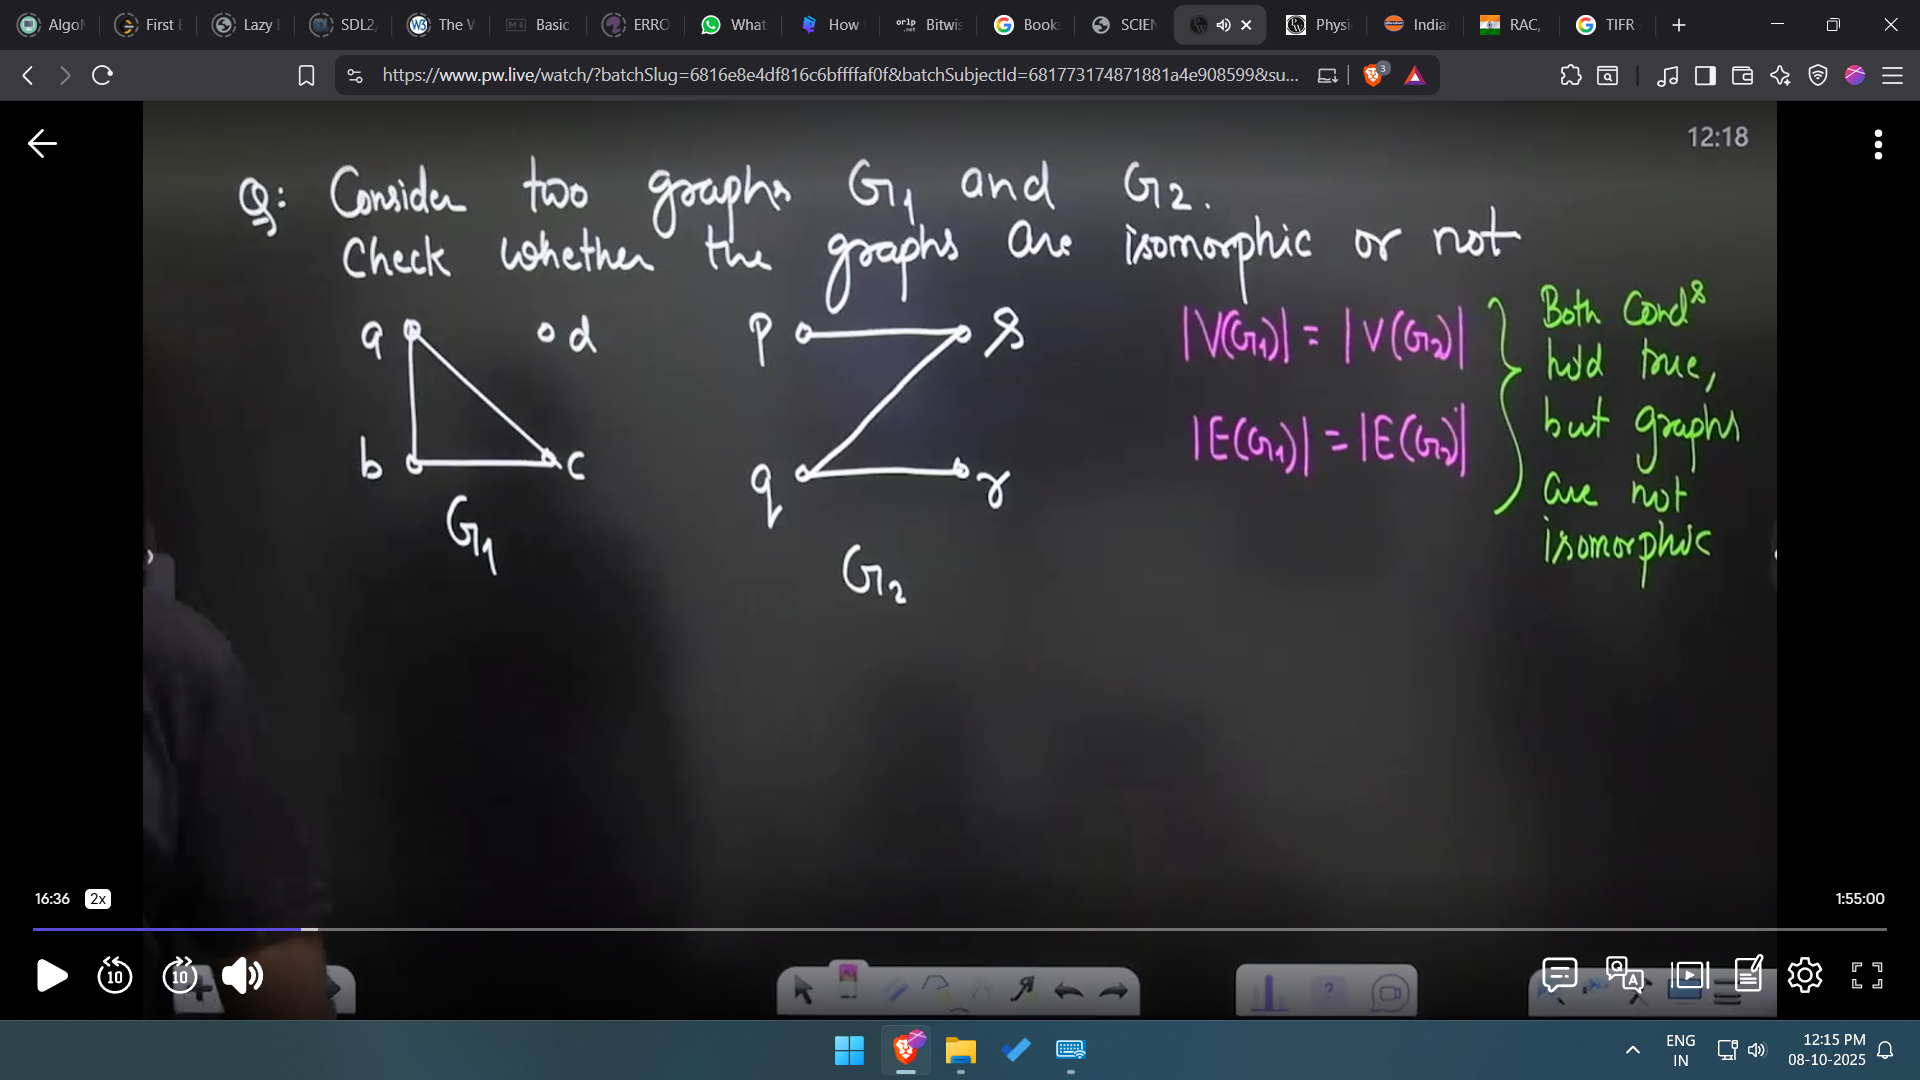 Algo
First
Lazy
SDL2,
The W
Basic
ERRO
What
How
Bitwi
Book
SCIEN
Physi
India
RAC,
TIFR
https://www.pw.live/watch/?batchSlug=6816e8e4df816c6bffffaf0f&batchSubjectId=681773174871881a4e908599&su...
3
12:18
Q: Consider two graphs G1 and G2.
Check whether the graphs are isomorphic or not
a
d
b
c
G1
p
s
q
r
G2
|V(G1)| = |V(G2)|
|E(G1)| = |E(G2)|
Both Condˢ
hold true,
but graphs
are not
isomorphic
16:36 2x
1:55:00
10
10
ENG
IN
12:15 PM
08-10-2025